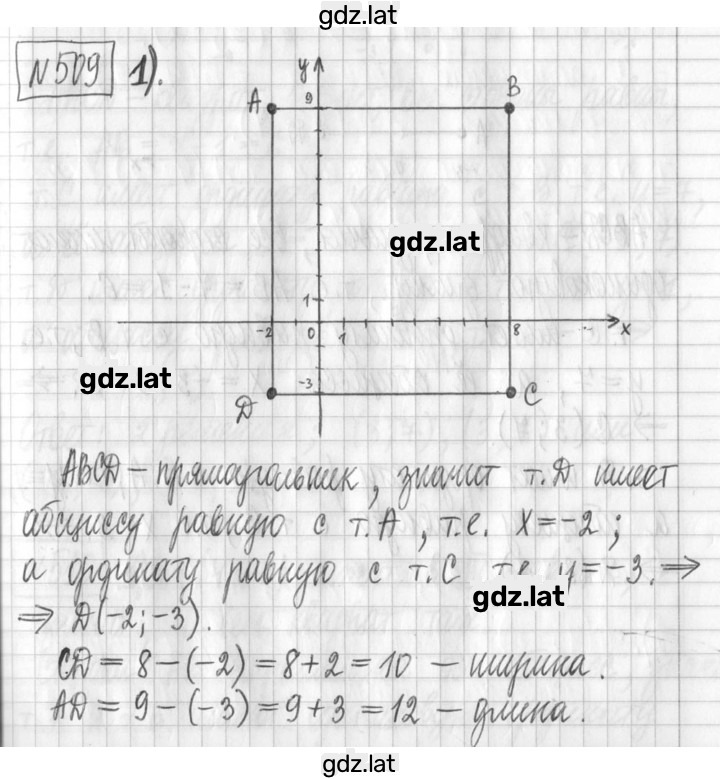 gdz.lat
N509 1).
y
A 9 B
gdz.lat
1
-2 0 1 8 x
gdz.lat
-3
D C
ABCD – прямоугольник, значит т.D имеет
абсциссу равную с т.A, т.е. x=-2;
а ординату равную с т.C т.е. y=-3. ⇒
gdz.lat
⇒ D(-2;-3).
CD = 8-(-2) = 8+2 = 10 – ширина.
AD = 9-(-3) = 9+3 = 12 – длина.
gdz.lat